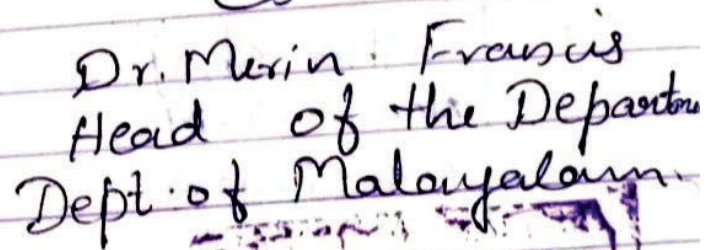 Dr. Merin Francis
Head of the Departm
Dept. of Malayalam.